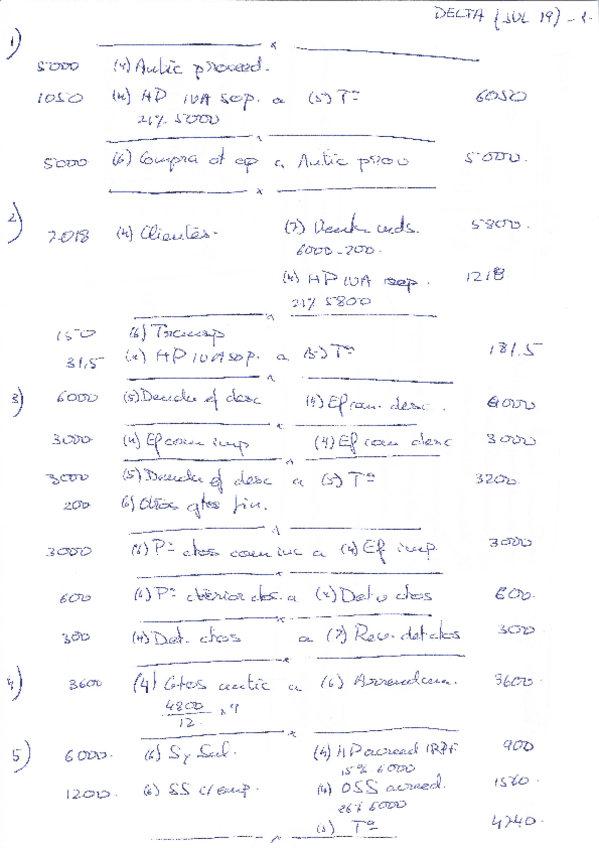 DELTA (JUL 19) - 1 -
1)
5000 (4) Antic proveed.
1050 (4) HP IVA sop. a (5) Tª 6050
21% 5000
5000 (6) Compra ot ap a Antic prov 5000.
2)
7018 (4) Clientes. (7) Venta mds. 5800.
6000 - 200.
(4) HP IVA rep. 1218
21% 5800
150 (6) Transp
31,5 (4) HP IVA sop. a (5) Tª 181,5
3) 6000 (5) Deuda ef desc (4) Ef com. desc. 6000
3000 (4) Ef com imp (4) Ef com desc 3000
3000 (5) Deuda ef desc a (5) Tª 3200.
200 (6) Otros gtos fin.
3000 (6) Pª ctos com inc a (4) Ef imp. 3000
600 (6) Pª deterior ctos. a (4) Det. v ctos 600.
300 (4) Det. ctos a (7) Rev. det ctos 300
4) 3600 (4) Gtos antic a (6) Arrendam. 3600.
4800
12 x 9
5) 6000. (6) S y Sal. (4) HP acreed IRPF 900
15% 6000
1200. (6) SS c/ emp. (4) OSS acreed. 1560
26% 6000
(5) Tª 4740.